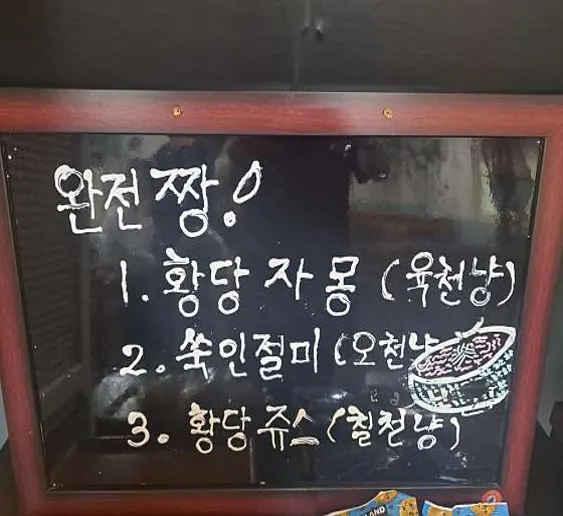 완전 짱!
1. 황당 자몽 (육천냥)
2. 쑥인절미 (오천냥
3. 황당 쥬스 (칠천냥)
LAND